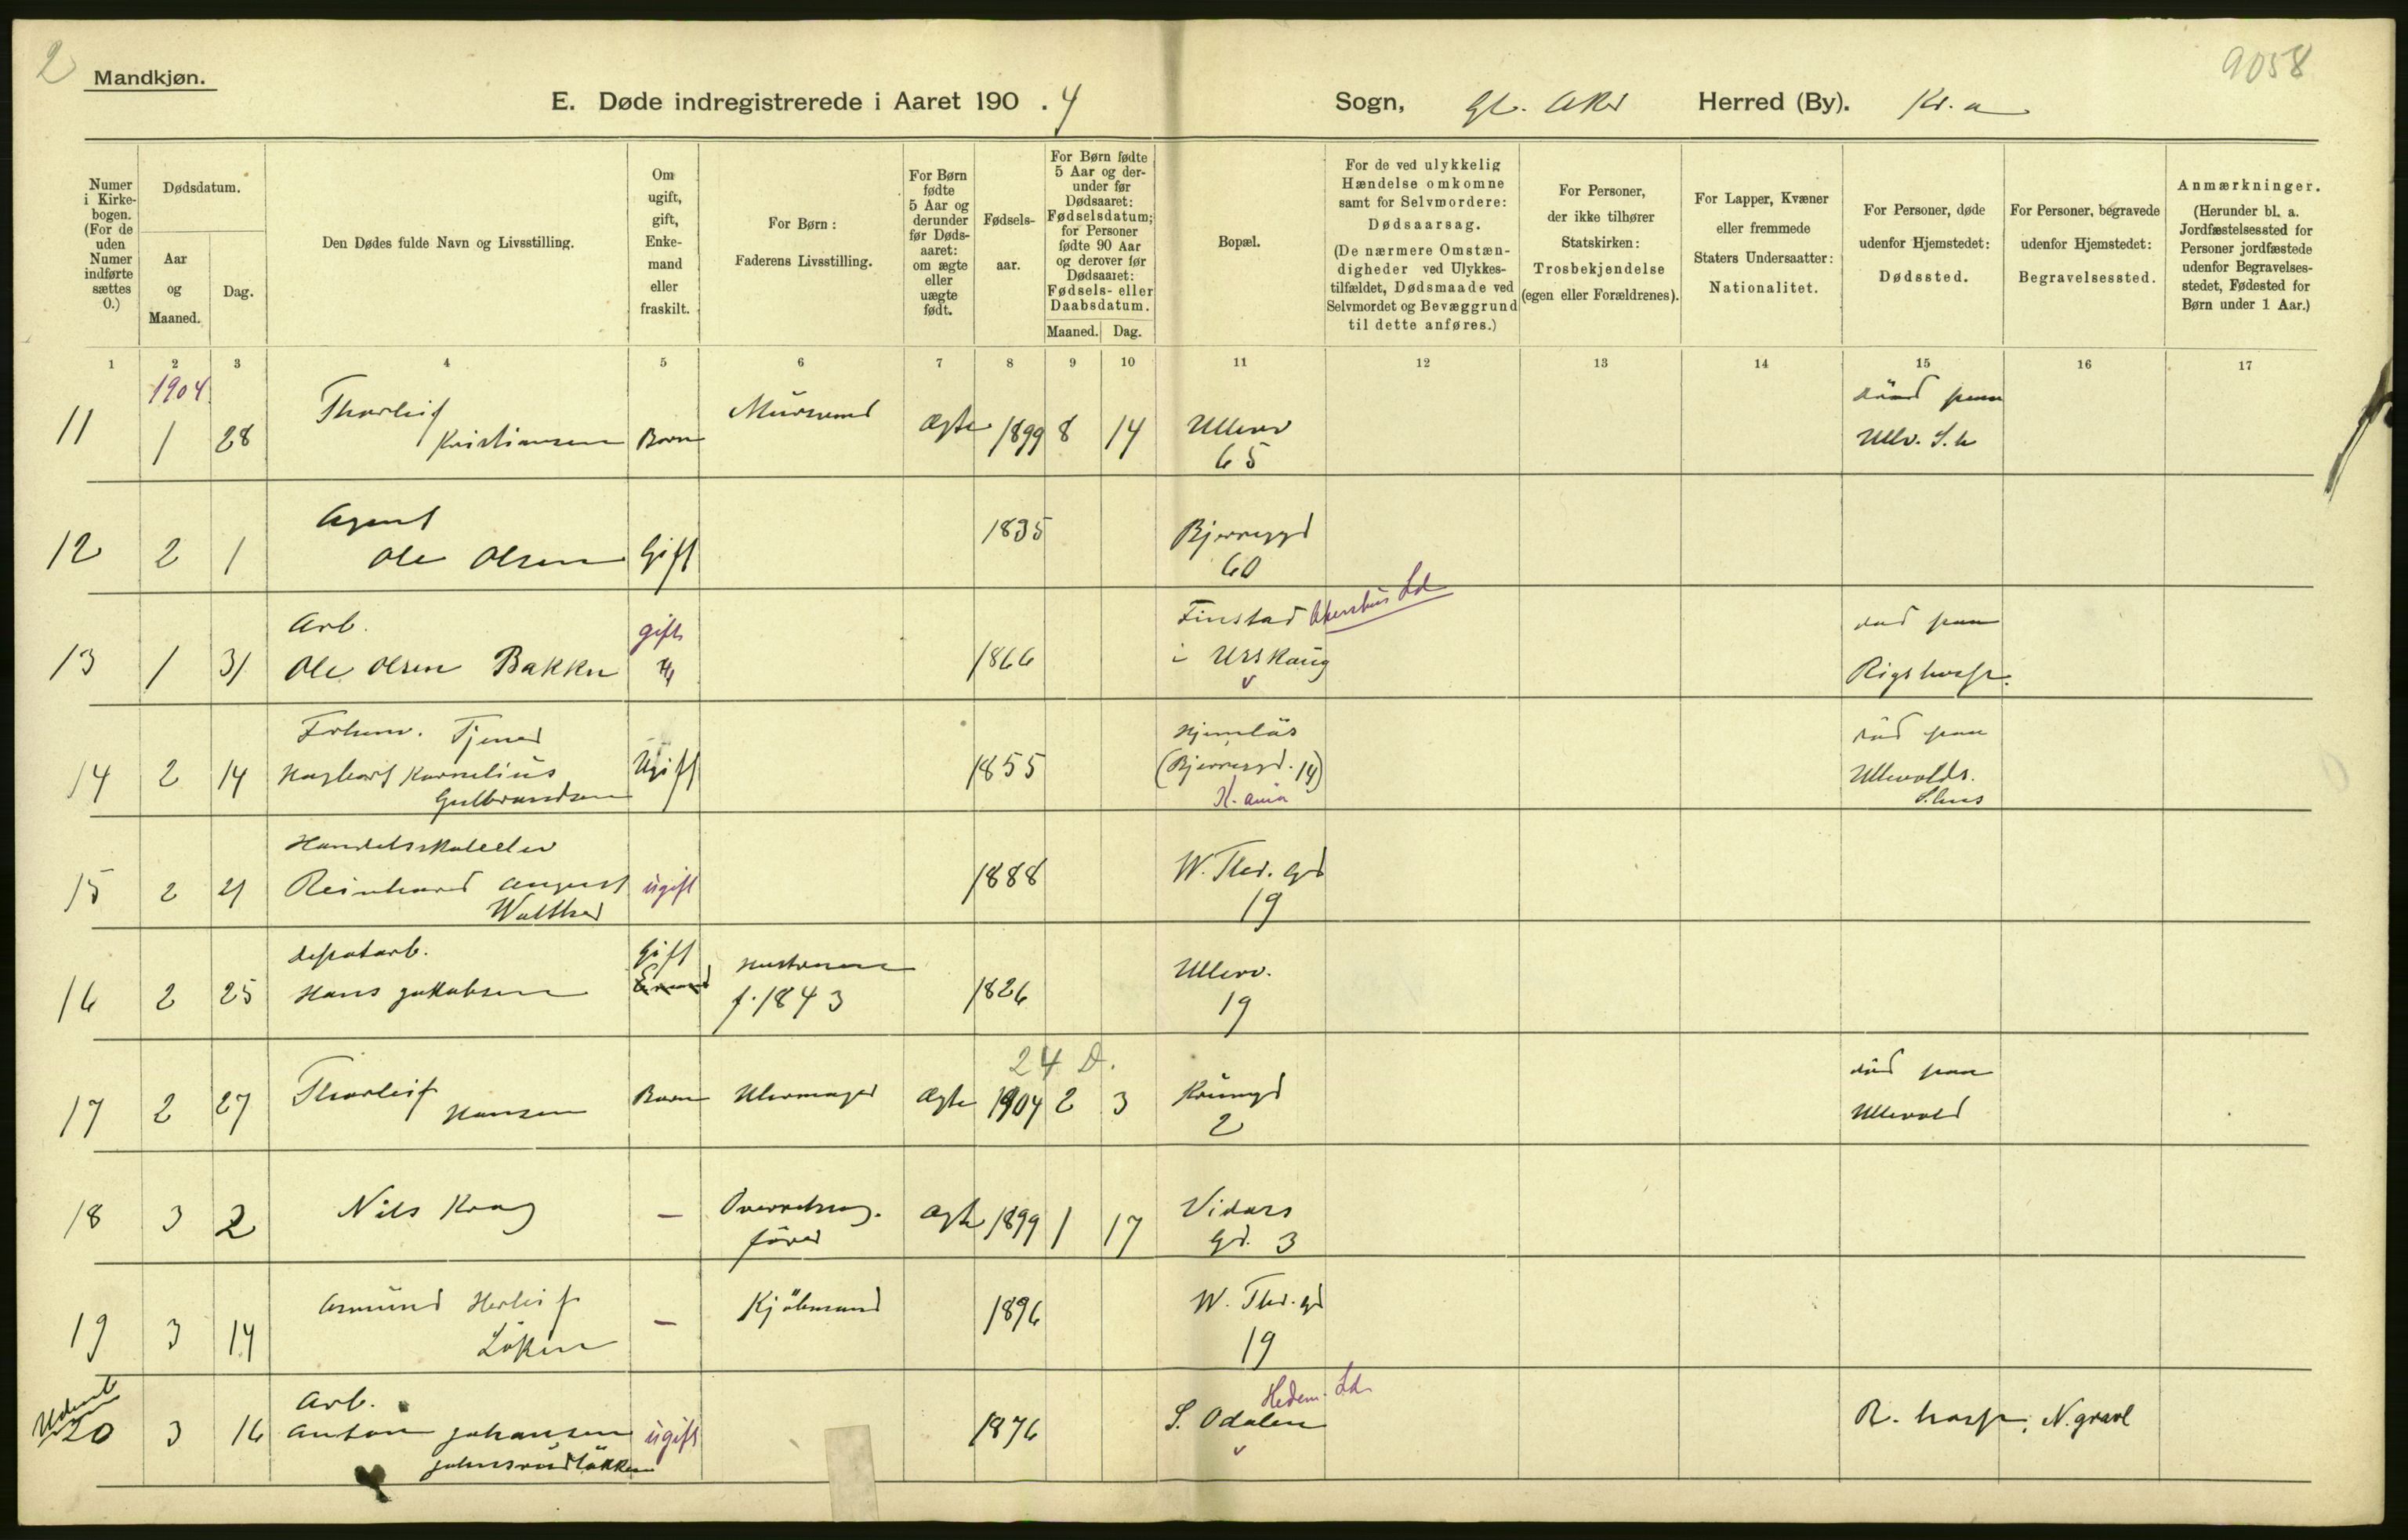 2
Mandkjøn.
9058
E. Døde indregistrerede i Aaret 190 . 4 Sogn, Gl. Aker Herred (By). Kr.a
Numer i Kirkebogen. (For de uden Numer indførte sættes 0.)
Dødsdatum.
Aar og Maaned.
Dag.
Den Dødes fulde Navn og Livsstilling.
Om ugift, gift, Enkemand eller fraskilt.
For Børn: Faderens Livsstilling.
For Børn fødte 5 Aar og derunder før Dødsaaret: om ægte eller uægte født.
Fødselsaar.
For Børn fødte 5 Aar og derunder før Dødsaaret: Fødselsdatum; for Personer fødte 90 Aar og derover før Dødsaaret: Fødsels- eller Daabsdatum.
Maaned. Dag.
Bopæl.
For de ved ulykkelig Hændelse omkomne samt for Selvmordere: Dødsaarsag. (De nærmere Omstændigheder ved Ulykkestilfældet, Dødsmaade ved Selvmordet og Bevæggrund til dette anføres.)
For Personer, der ikke tilhører Statskirken: Trosbekjendelse (egen eller Forældrenes).
For Lapper, Kvæner eller fremmede Staters Undersaatter: Nationalitet.
For Personer, døde udenfor Hjemstedet: Dødssted.
For Personer, begravede udenfor Hjemstedet: Begravelsessted.
Anmærkninger. (Herunder bl. a. Jordfæstelsessted for Personer jordfæstede udenfor Begravelsesstedet, Fødested for Børn under 1 Aar.)
1 2 3 4 5 6 7 8 9 10 11 12 13 14 15 16 17
1904
11 1 28 Thorleif Kristiansen Barn Murermd Ægte 1899 8 14 Ullev 65 död paa Ullv. S.h
12 2 1 Agent Ole Olsen Gift 1835 Bjerregd 60
13 1 31 Arb. Ole Olsen Bakken gift 1866 Finstad i Urskaug Akershus Ld död paa Rigshosp.
14 2 14 Forhenv. Tjener Haghart Kornelius Gulbrandsen Ugift 1855 Hjemløs (Bjerregd. 14) K.ania död paa Ullevolds. S.hus
15 2 21 Handelsskoleelev Reinhard August Walther ugift 1888 W. Thr. gd 19
16 2 25 depotarb. Hans Jakobsen Gift Hustruen f. 1843 1826 Ullev. 19
24 D.
17 2 27 Thorleif Hansen Barn Uhrmager Ægte 1904 2 3 Krumgd 2 död paa Ullevold
18 3 2 Nils Krag — Overretssag. förer Ægte 1899 1 17 Vidars Gd. 3
19 3 14 Asmund Herleif Löken — Kjöbmand 1896 W. Thr. gd 19
20 3 16 Arb. Anton Johansen Johnsrudløkken ugift 1876 S. Odalen Hedem. Ld. R. hosp. N. gravl